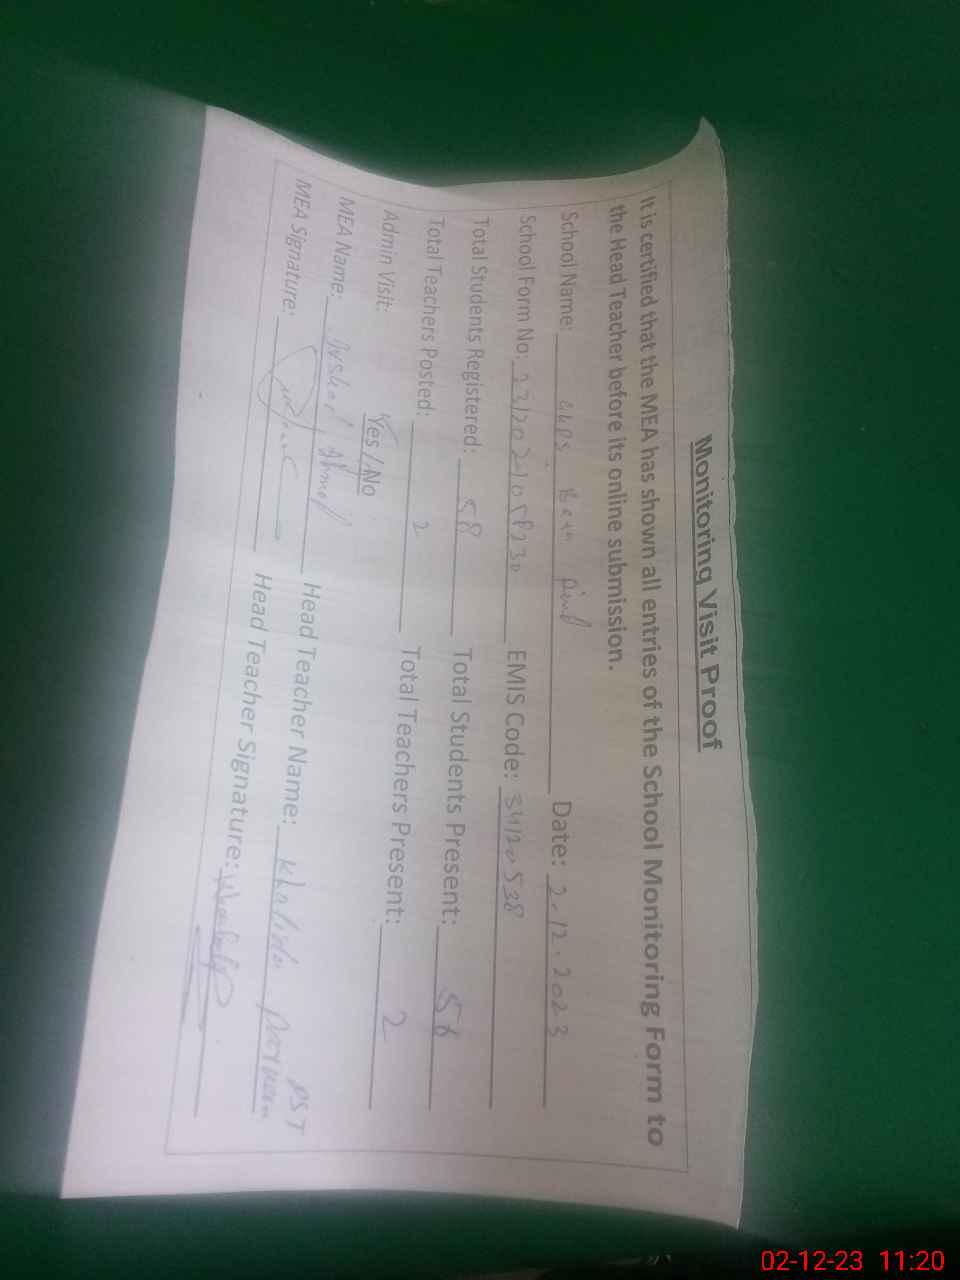 Monitoring Visit Proof
It is certified that the MEA has shown all entries of the School Monitoring Form to
the Head Teacher before its online submission.
School Name: GGPS Pind Date: 2.12.2023
School Form No: EMIS Code: 34120538
Total Students Registered: 58 Total Students Present: 56
Total Teachers Posted: 2 Total Teachers Present: 2
Admin Visit: Yes / No
PST
MEA Name: Ahmed Head Teacher Name: Khalida Parveen
MEA Signature: Head Teacher Signature:
02-12-23 11:20